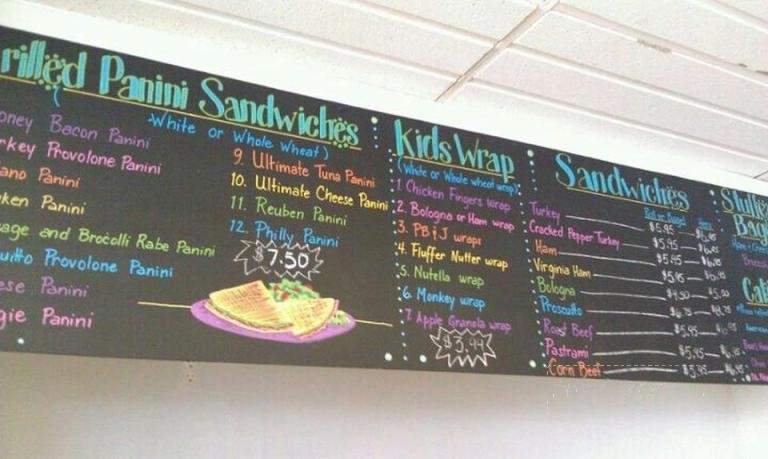 rilled Panini Sandwiches
(White or Whole Wheat)
oney Bacon Panini
rkey Provolone Panini
ano Panini
ken Panini
sage and Brocolli Rabe Panini
uitto Provolone Panini
ese Panini
gie Panini
9. Ultimate Tuna Panini
10. Ultimate Cheese Panini
11. Reuben Panini
12. Philly Panini
$7.50
Kids Wrap
(White or Whole wheat wrap)
1. Chicken Fingers wrap
2. Bologna or Ham wrap
3. PB&J wraps
4. Fluffer Nutter wrap
5. Nutella wrap
6. Monkey wrap
7. Apple Granola wrap
$3.99
Sandwiches
Turkey $5.95
Cracked Pepper Turkey $5.95
Ham $5.45
Virginia Ham $5.95
Bologna $4.50 $5.50
Prosciutto $6.75
Roast Beef $5.95 $6.95
Pastrami $5.95 $6.95
Corn Beef $5.95
Stuffe
Bag